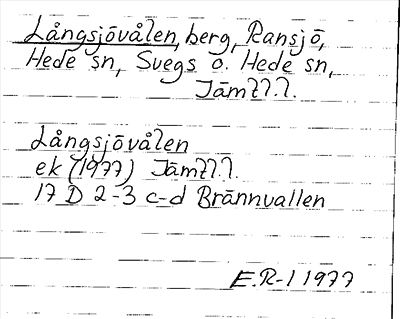 Långsjövålen, berg, Ransjö,
Hede sn, Svegs o. Hede sn,
Jämtl.
Långsjövålen
ek (1977) Jämtl.
17 D 2-3 c-d Brännvallen
E.R-l 1977